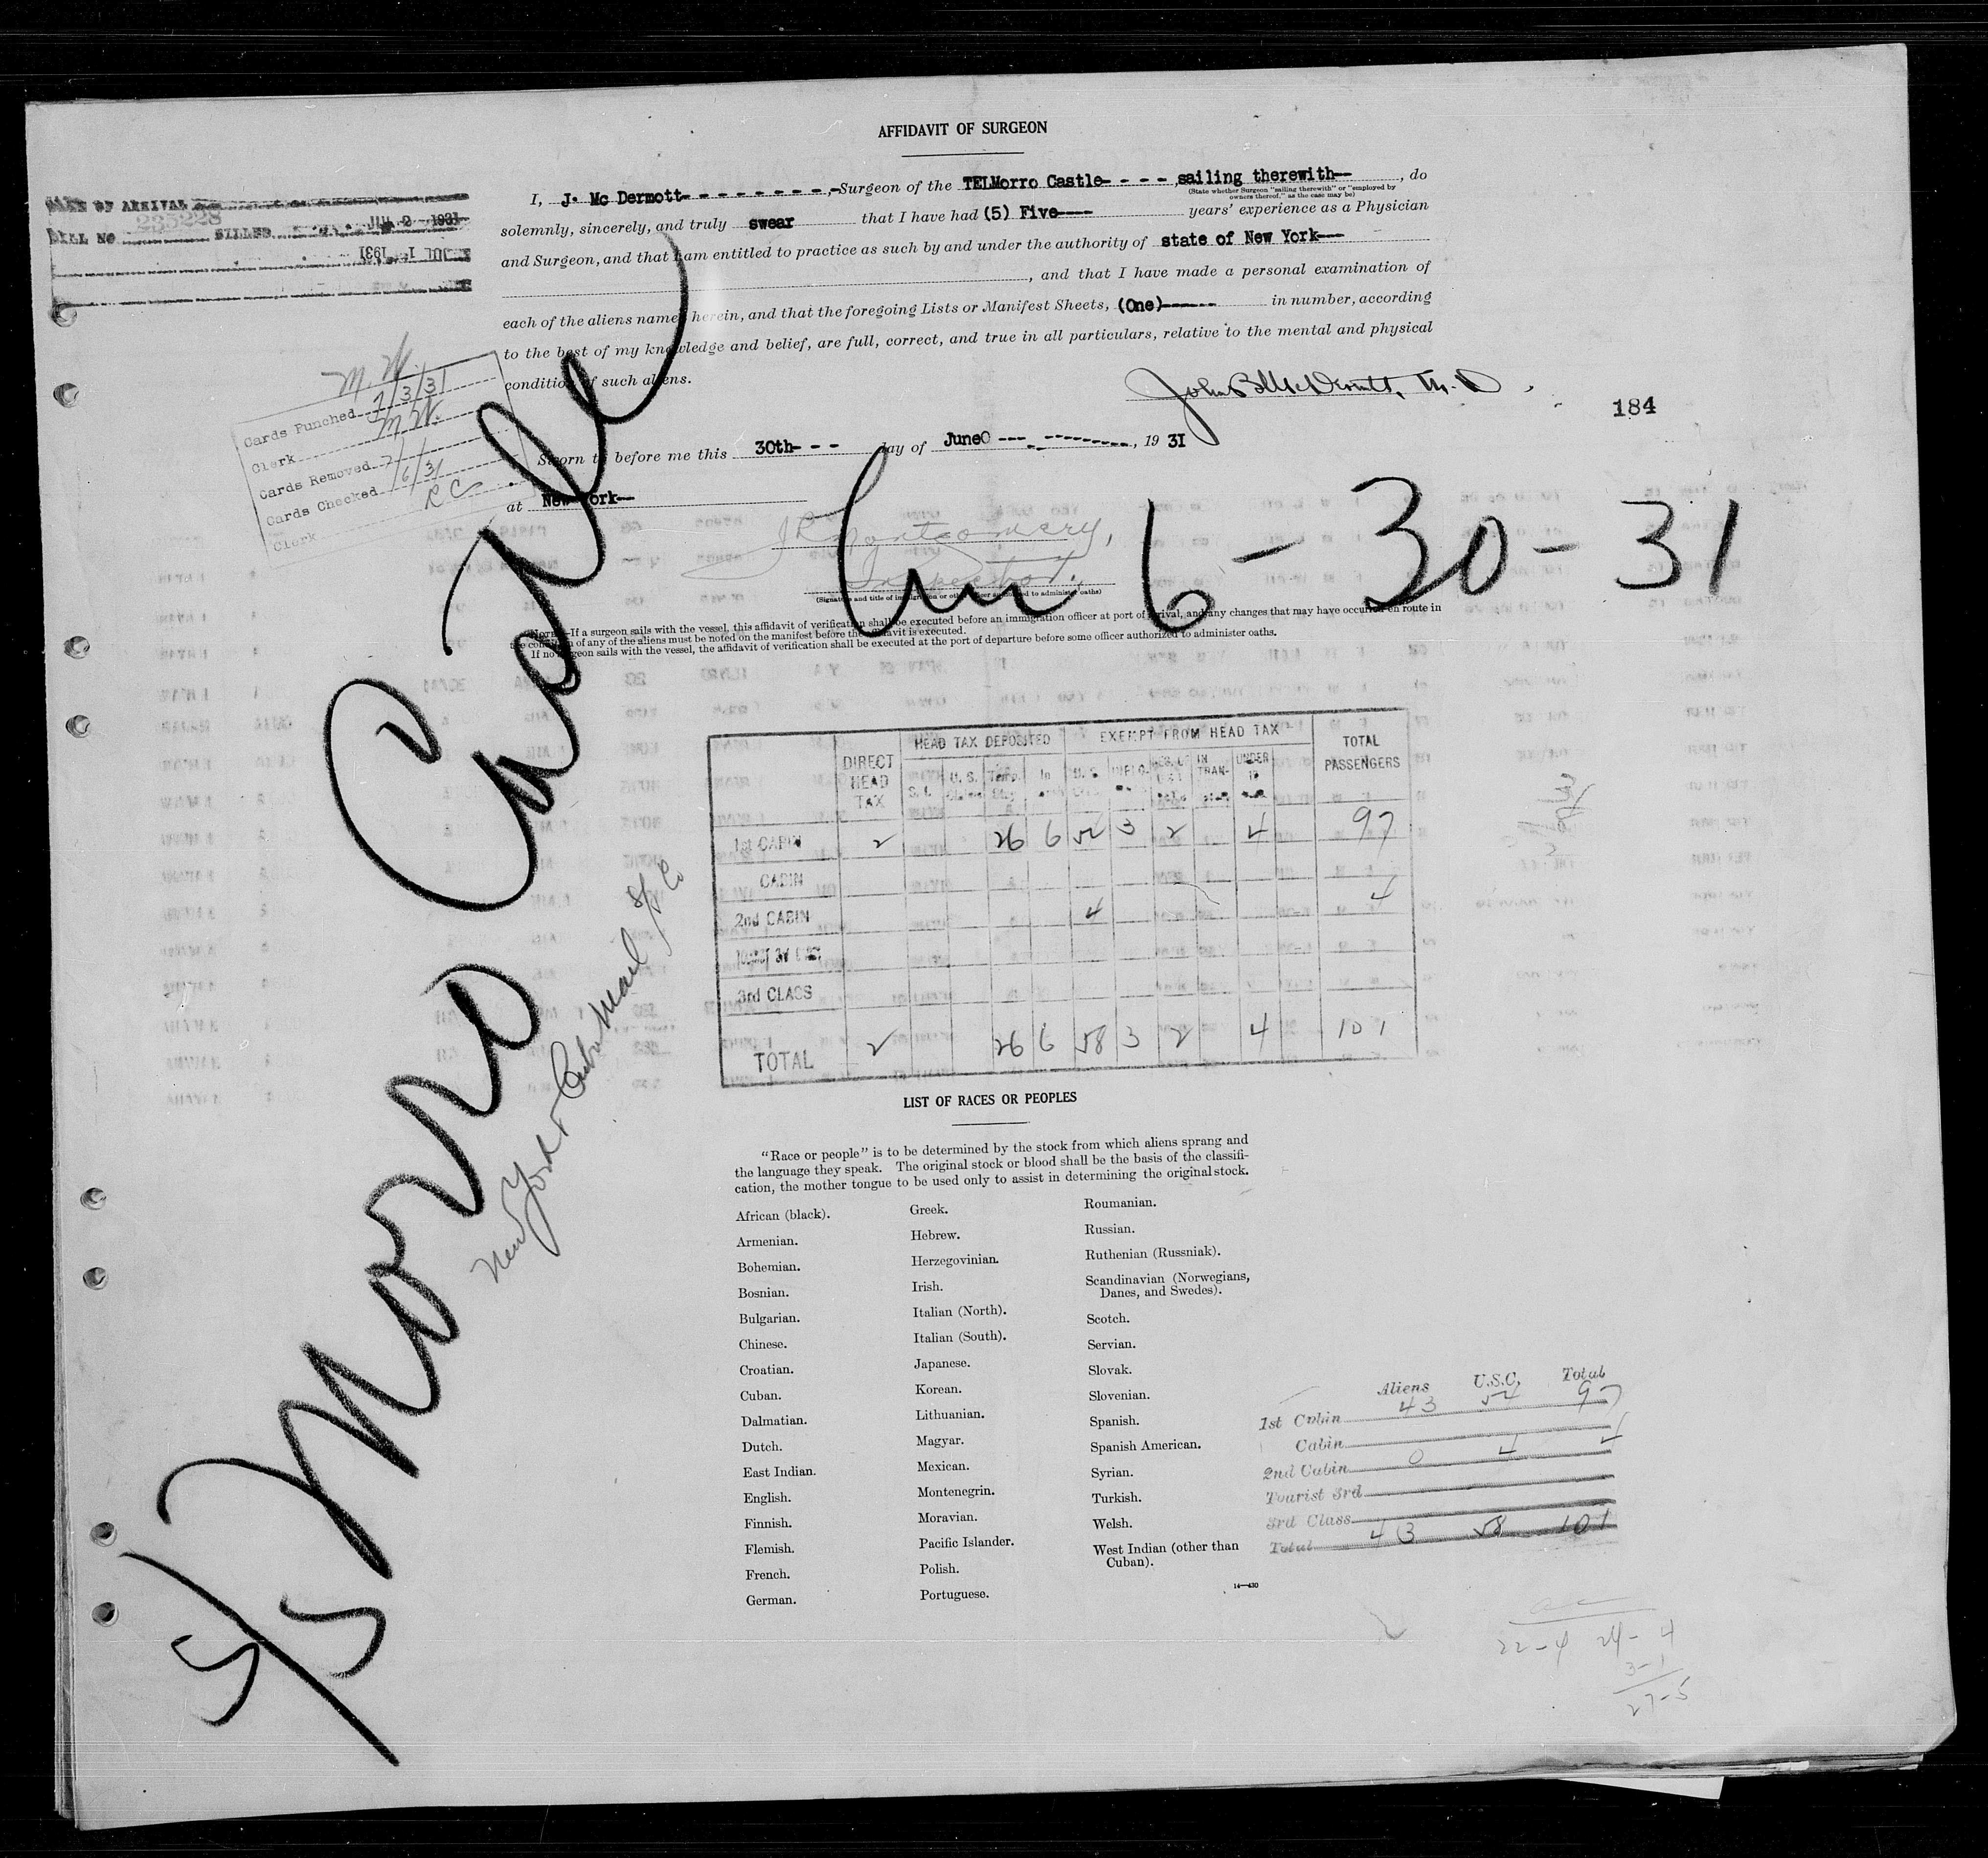 AFFIDAVIT OF SURGEON
I, J. Mc Dermott- - - - - - - - -, Surgeon of the TELMorro Castle- - - -, sailing therewith--, do
(State whether Surgeon "sailing therewith" or "employed by owners thereof," as the case may be)
solemnly, sincerely, and truly swear that I have had (5) Five---- years' experience as a Physician
and Surgeon, and that I am entitled to practice as such by and under the authority of state of New York---
, and that I have made a personal examination of
each of the aliens named herein, and that the foregoing Lists or Manifest Sheets, (One)------ in number, according
to the best of my knowledge and belief, are full, correct, and true in all particulars, relative to the mental and physical
condition of such aliens.
184
Sworn to before me this 30th- - - day of June0 --- - ---------, 1931
at New York--
J R Montgomery,
Inspector.
(Signature and title of immigration or other officer authorized to administer oaths)
NOTE.—If a surgeon sails with the vessel, this affidavit of verification shall be executed before an immigration officer at port of arrival, and any changes that may have occurred en route in
the condition of any of the aliens must be noted on the manifest before the affidavit is executed.
If no surgeon sails with the vessel, the affidavit of verification shall be executed at the port of departure before some officer authorized to administer oaths.
DATE OF ARRIVAL
BILL NO 235228 BILLED JUL 2 - 1931
JUL 1 1931
M. W.
Cards Punched 7/3/31
Clerk M W.
Cards Removed
Cards Checked 7/6/31
Clerk R C
6-30-31
S/S Morro Castle
New York & Cuba Mail S/S Co
DIRECT HEAD TAX HEAD TAX DEPOSITED EXEMPT FROM HEAD TAX TOTAL PASSENGERS
S. I. U. S. Temp. In U. S. IN TRAN- UNDER
1st CABIN 2 26 6 54 3 2 4 97
CABIN
2nd CABIN 4 4
3rd CLASS
TOTAL 2 26 6 58 3 2 4 101
LIST OF RACES OR PEOPLES
"Race or people" is to be determined by the stock from which aliens sprang and
the language they speak. The original stock or blood shall be the basis of the classifi-
cation, the mother tongue to be used only to assist in determining the original stock.
African (black).
Armenian.
Bohemian.
Bosnian.
Bulgarian.
Chinese.
Croatian.
Cuban.
Dalmatian.
Dutch.
East Indian.
English.
Finnish.
Flemish.
French.
German.
Greek.
Hebrew.
Herzegovinian.
Irish.
Italian (North).
Italian (South).
Japanese.
Korean.
Lithuanian.
Magyar.
Mexican.
Montenegrin.
Moravian.
Pacific Islander.
Polish.
Portuguese.
Roumanian.
Russian.
Ruthenian (Russniak).
Scandinavian (Norwegians,
Danes, and Swedes).
Scotch.
Servian.
Slovak.
Slovenian.
Spanish.
Spanish American.
Syrian.
Turkish.
Welsh.
West Indian (other than
Cuban).
14—430
Aliens U.S.C. Total
1st Cabin 43 54 97
Cabin
2nd Cabin 0 4 4
Tourist 3rd
3rd Class
Total 43 58 101
22-4 24-4
3-1
27-5